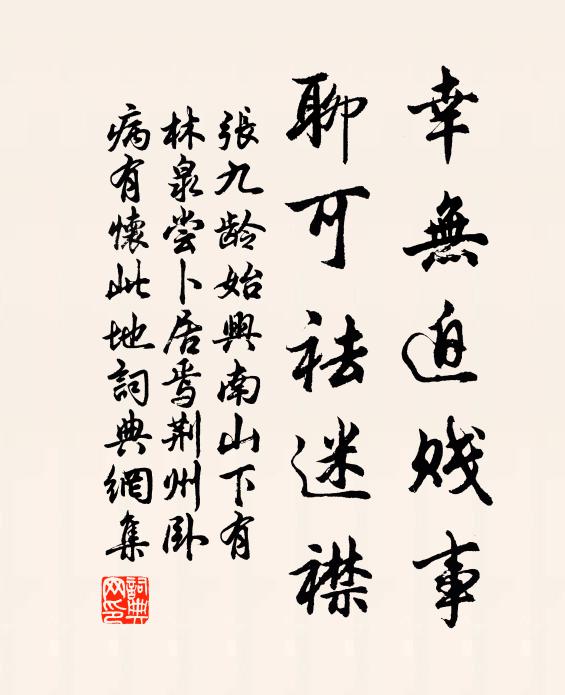 幸無迫賤事
聊可祛迷襟
張九龄始興南山下有
林泉尝卜居焉荆州卧
病有懷此地詞典網集
詞典網印